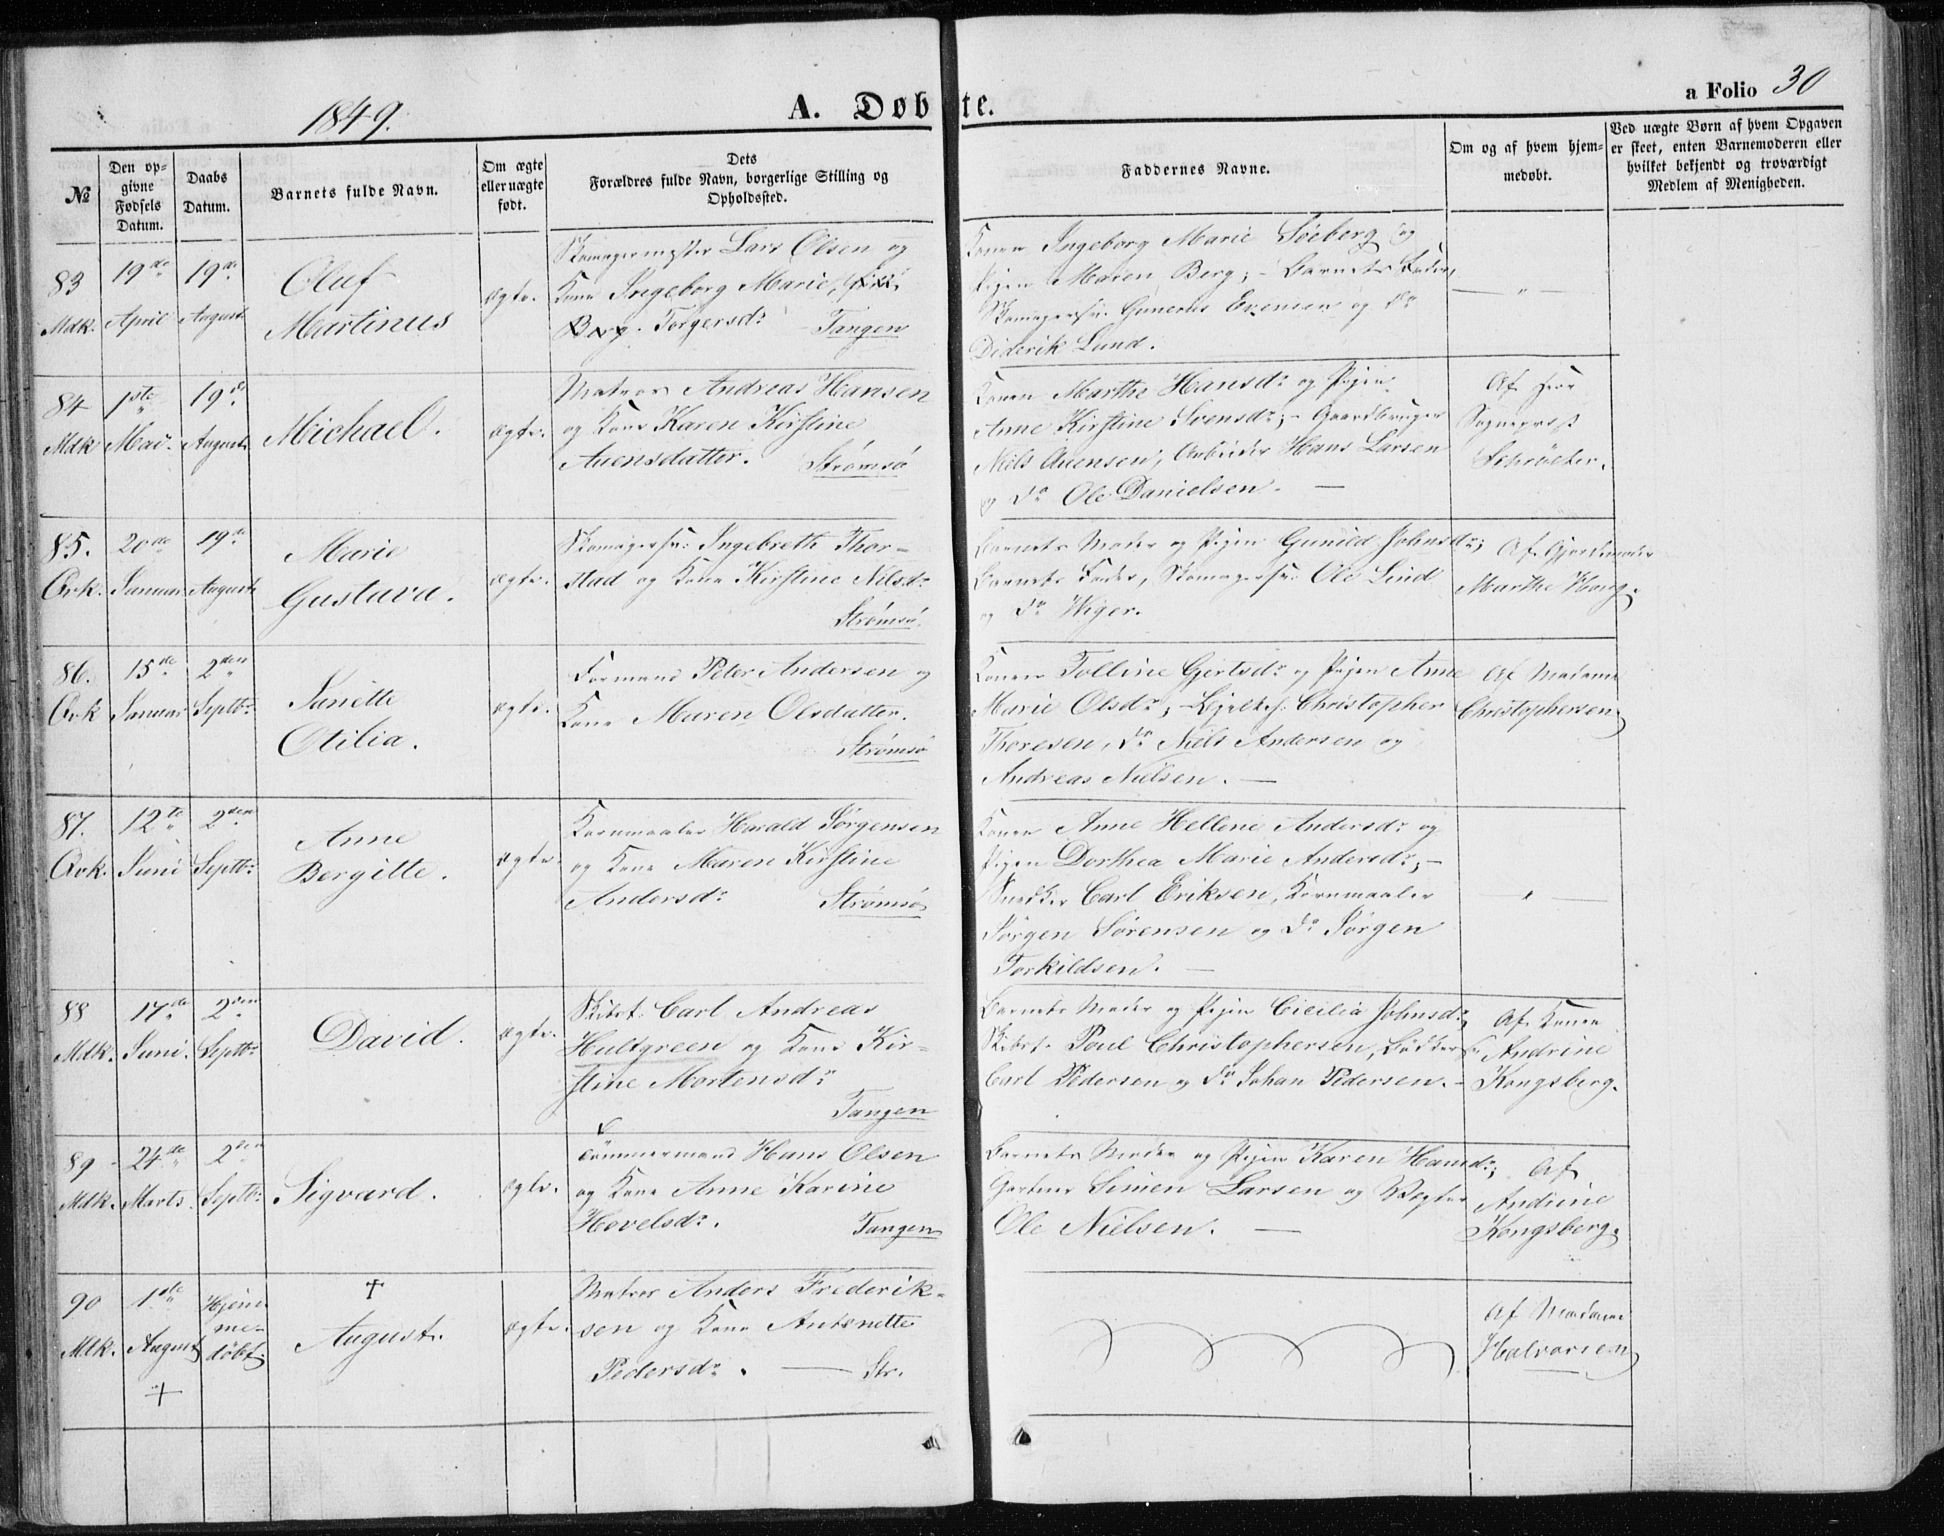 1849.
A. Døbte.
a Folio 30
№
Den opgivne Fødsels Datum.
Daabs Datum.
Barnets fulde Navn.
Om ægte eller uægte født.
Dets Forældres fulde Navn, borgerlige Stilling og Opholdssted.
Faddernes Navne.
Om og af hvem hjemmedøbt.
Ved uægte Børn af hvem Opgaven er skeet, enten Barnemoderen eller hvilket bekjendt og troværdigt Medlem af Menigheden.
83
Mdk.
19de
April
19de
August
Oluf
Martinus
ægte.
Skomagermester Lars Olsen og
Kone Ingeborg Marie,
Berg. Torgersdr. Tangen
Konen Ingeborg Marie Søeberg og
Pigen Maren Berg; - Barnets Fader,
Skomagersv. Gunerius Evensen og Do
Diderik Lund.
— " —
84
Mdk
1ste
Mai.
19de
August
Michael.
ægte.
Matros Andreas Hansen
og Kone Karen Kirstine
Auensdatter. Strømsø
Konen Marthe Hansdr. og Pigen
Anne Kirstine Svensdr.; - Gaardbruger
Nils Auensen, Arbeider Hans Larsen
og Do Ole Danielsen. —
Af Herr
Sogneprest
Schrøeter.
85.
Qvk.
20de
Januar
19de
August
Marie
Gustava.
ægte.
Skomagersv: Ingebreth Thor-
stad og Kone Kirstine Nilsdr.
Strømsø.
Barnets Moder og Pigen Gunild Johnsdr.;
Barnets Fader, Skomagersv: Ole Lind
og Do Wiger.
Af Gjordemoder
Marthe Haug.
86.
Qvk
15de
Januar
2den
Septbr.
Janette
Otilia.
ægte.
Formand Peter Andersen og
Kone Maren Olsdatter.
Strømsø
Konen Tolline Gjertsdr. og Pigen Anne
Marie Olsdr.; - Christopher
Thoresen, Do Niels Andersen og
Andreas Nielsen. —
Af Madame
Christophersen
87.
Qvk.
12te
Juni
2den
Septbr.
Anne
Bergitte.
ægte.
Kornmaaler Harald Jørgensen
og Kone Maren Kirstine
Andersdr. Strømsø
Konen Anne Hellene Andersdr. og
Pigen Dorthea Marie Andersdr.; —
Snedker Carl Eriksen, Kornmaaler
Jørgen Sørensen og Do Jørgen
Torkildsen. —
— " —
88
Mdk.
17de
Juni.
2den
Septbr.
David.
ægte.
Skibst. Carl Andreas
Hultgreen og Kone Kir-
stine Mortensdr.
Tangen
Barnets Moder og Pigen Cicilia Johnsdr.,
Skibst. Poul Christophersen, Bødkersv.
Carl Pedersen og Do Johan Pedersen. —
Af Konen
Andrine
Kongsberg.
89
Mdk.
24de
Marts.
2den
Septbr.
Sigvard.
ægte.
Tømmermand Hans Olsen
og Kone Anne Karine
Hovelsdr. Tangen
Barnets Moder og Pigen Karen Hansdr.;
Gartner Simen Larsen og Vægter
Ole Nielsen. —
Af
Andrine
Kongsberg.
90
Mdk.
1ste
August
+
Hjem
me-
døbt.
+
August.
ægte.
Matros Anders Frederik-
sen og Kone Antonette
Pedersdr. — Str.
Af Madame
Halvorsen